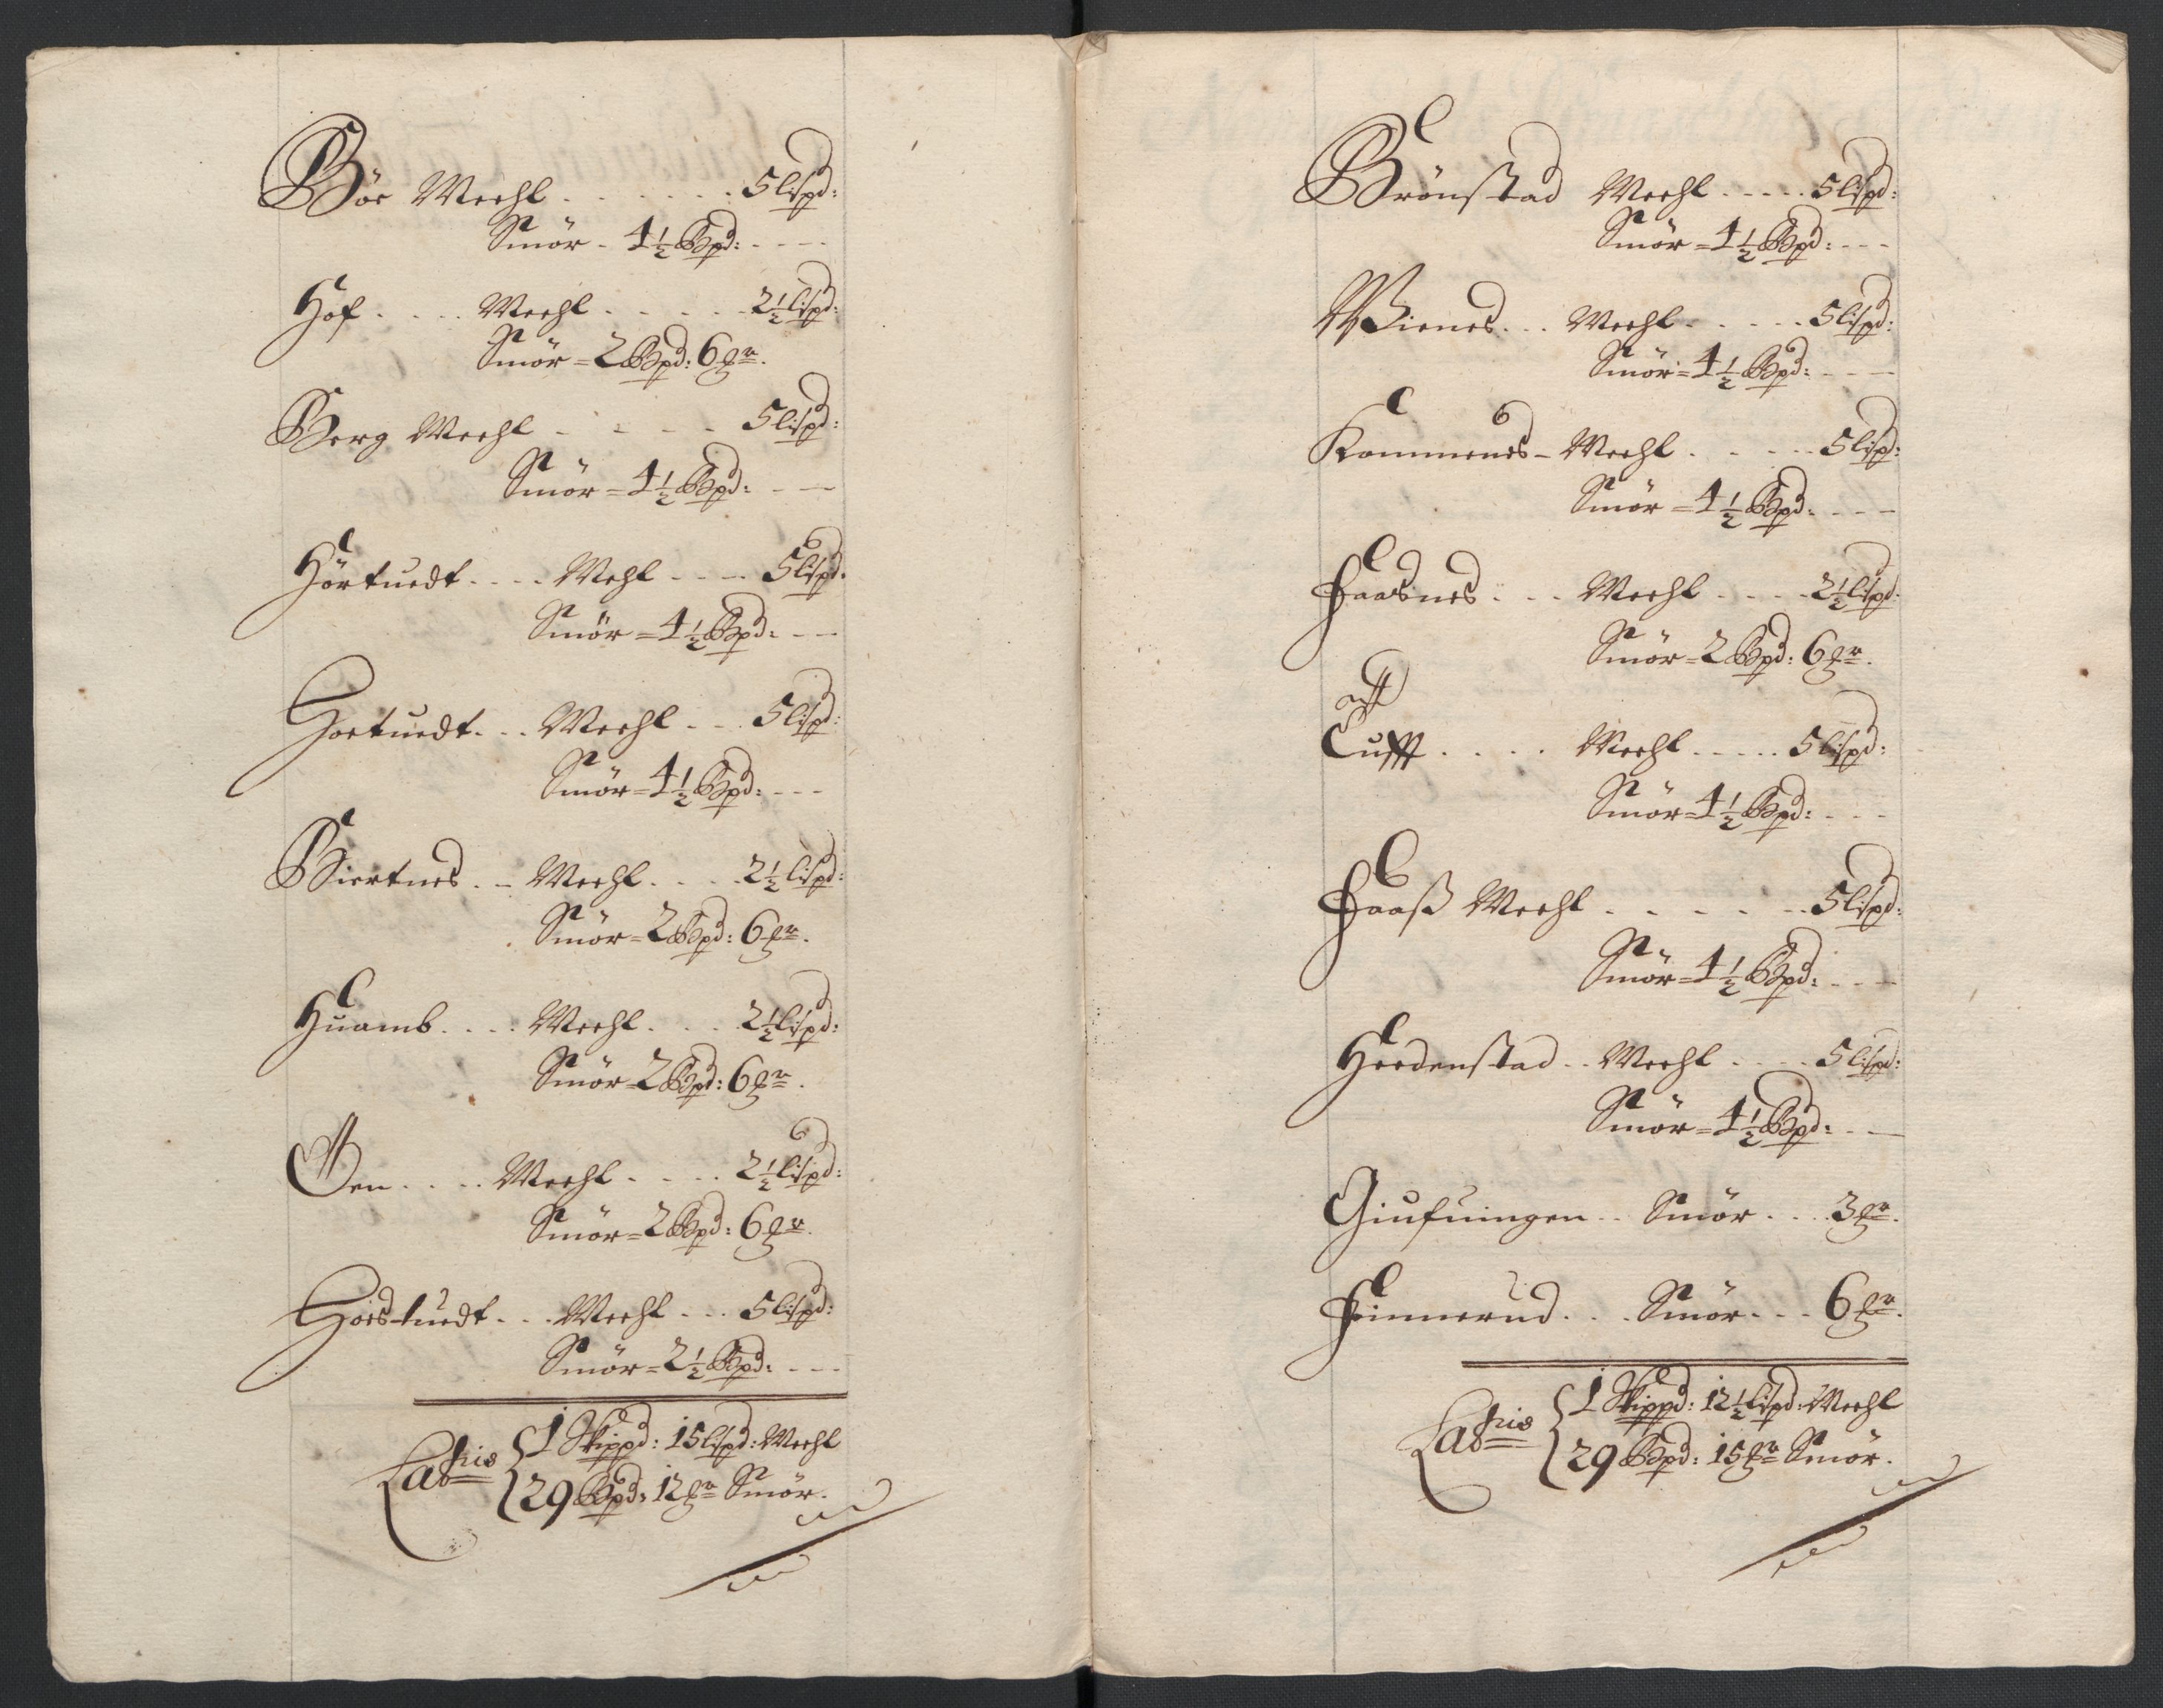 Böe Meehl . . . . . . 5 lispd:
Smör - 4 1/2 Bpd: - - - -
Hof . . . . Meehl . . . . . 2 1/2 lispd:
Smör = 2 Bpd: 6 ℔r.
Berg Meehl - - - - - 5 lispd:
Smör = 4 1/2 Bpd: - - -
Hörtuedt . . . . Mehl - - - - 5 lispd.
Smör = 4 1/2 Bpd: - - -
Hortuedt . . . Meehl - - - 5 lispd:
Smör = 4 1/2 Bpd: - - -
Biertnes . - Meehl . . . . 2 1/2 lispd:
Smör = 2 Bpd: 6 ℔r.
Huamb . . . . Meehl . . . . 2 1/2 lispd:
Smör = 2 Bpd: 6 ℔r.
Øen . . . . Meehl . . . . 2 1/2 lispd:
Smör = 2 Bpd: 6 ℔r.
Goes-tuedt . . . Meehl . . . 5 lispd:
Smör = 2 1/2 Bpd: - - -
Latris { 1 Skippd: 15 lispd: Meehl
29 Bpd: 12 ℔r Smör.
Brönstad Meehl . . . . . 5 lispd:
Smör = 4 1/2 Bpd: - - -
Wienes . . . Meehl . . . . . 5 lispd:
Smör = 4 1/2 Bpd: - - -
Kommenes - Meehl . . . . . 5 lispd:
Smör = 4 1/2 Bpd: - - -
Haasnes . . . Meehl . . . . 2 1/2 lispd:
Smör = 2 Bpd: 6 ℔r.
Tufft . . . . Meehl . . . . . 5 lispd:
Smör = 4 1/2 Bpd: - - -
Haaß Meehl . . . . . . 5 lispd:
Smör = 4 1/2 Bpd: - - -
Heedenstad . . Meehl . . . . 5 lispd:
Smör = 4 1/2 Bpd: - - -
Giufuingen . . Smör . . . 3 ℔r.
Finnerud . . . Smör . . . 6 ℔r.
Latris { 1 Skippd: 12 1/2 lispd: Meehl
29 Bpd: 15 ℔r Smör.